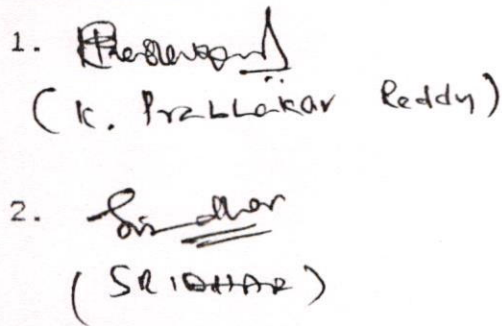 1.
(K. Prabhakar Reddy)
2. Sridhar
(SRIDHAR)